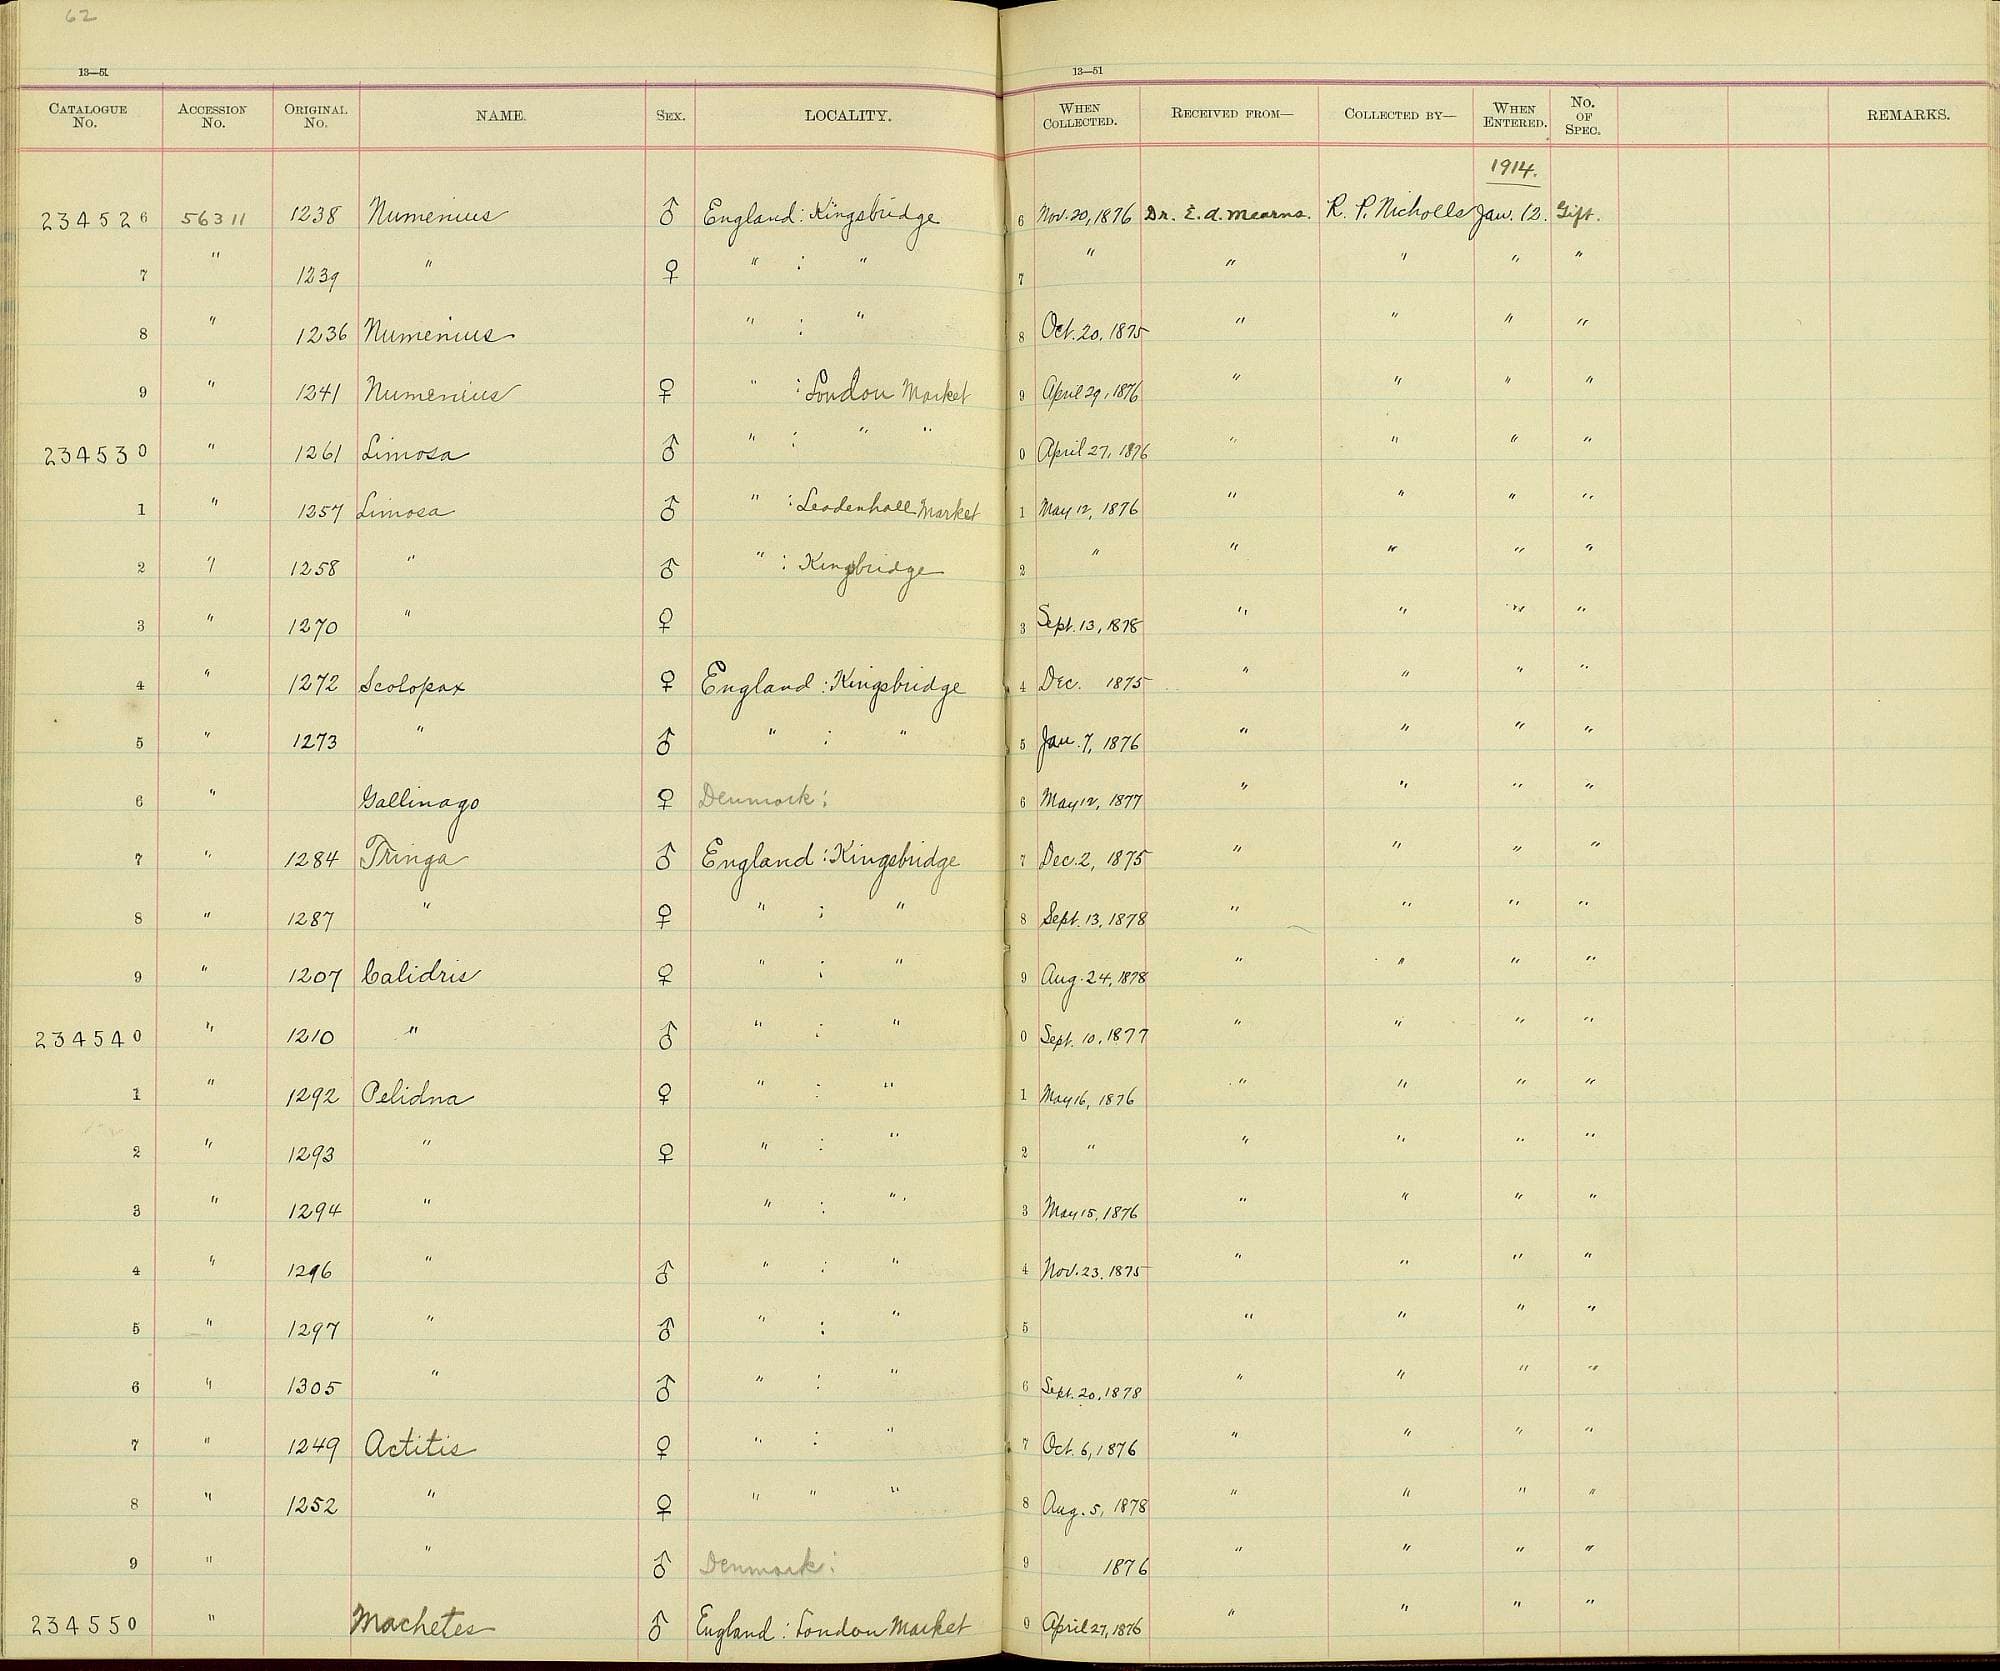 62
13—51 13—51
CATALOGUE No. ACCESSION No. ORIGINAL No. NAME. SEX. LOCALITY. WHEN COLLECTED. RECEIVED FROM— COLLECTED BY— WHEN ENTERED. No. OF SPEC. REMARKS.
1914.
234526 56311 1238 Numenius ♂ England : Kingsbridge 6 Nov. 20, 1876 Dr. E. A. Mearns. R. P. Nicholls Jan. 12. Gift.
7 " 1239 " ♀ " : " 7 " " " " "
8 " 1236 Numenius " : " 8 Oct. 20, 1875 " " " "
9 " 1241 Numenius ♀ " : London Market 9 April 29, 1876 " " " "
234530 " 1261 Limosa ♂ " : " " 0 April 27, 1876 " " " "
1 " 1257 Limosa ♂ " : Leadenhall Market 1 May 12, 1876 " " " "
2 " 1258 " ♂ " : Kingsbridge 2 " " " " "
3 " 1270 " ♀ 3 Sept. 13, 1878 " " " "
4 " 1272 Scolopax ♀ England : Kingsbridge 4 Dec. 1875 " " " "
5 " 1273 " ♂ " : " 5 Jan. 7, 1876 " " " "
6 " Gallinago ♀ Denmark : 6 May 12, 1877 " " " "
7 " 1284 Tringa ♂ England : Kingsbridge 7 Dec. 2, 1875 " " " "
8 " 1287 " ♀ " : " 8 Sept. 13, 1878 " " " "
9 " 1207 Calidris ♀ " : " 9 Aug. 24, 1878 " " " "
234540 " 1210 " ♂ " : " 0 Sept. 10, 1877 " " " "
1 " 1292 Pelidna ♀ " : " 1 May 16, 1876 " " " "
2 " 1293 " ♀ " : " 2 " " " " "
3 " 1294 " " : " 3 May 15, 1876 " " " "
4 " 1296 " ♂ " : " 4 Nov. 23, 1875 " " " "
5 " 1297 " ♂ " : " 5 " " " "
6 " 1305 " ♂ " : " 6 Sept. 20, 1878 " " " "
7 " 1249 Actitis ♀ " : " 7 Oct. 6, 1876 " " " "
8 " 1252 " ♀ " " " 8 Aug. 5, 1878 " " " "
9 " " ♂ Denmark : 9 1876 " " " "
234550 " Machetes ♂ England : London Market 0 April 27, 1876 " " " "